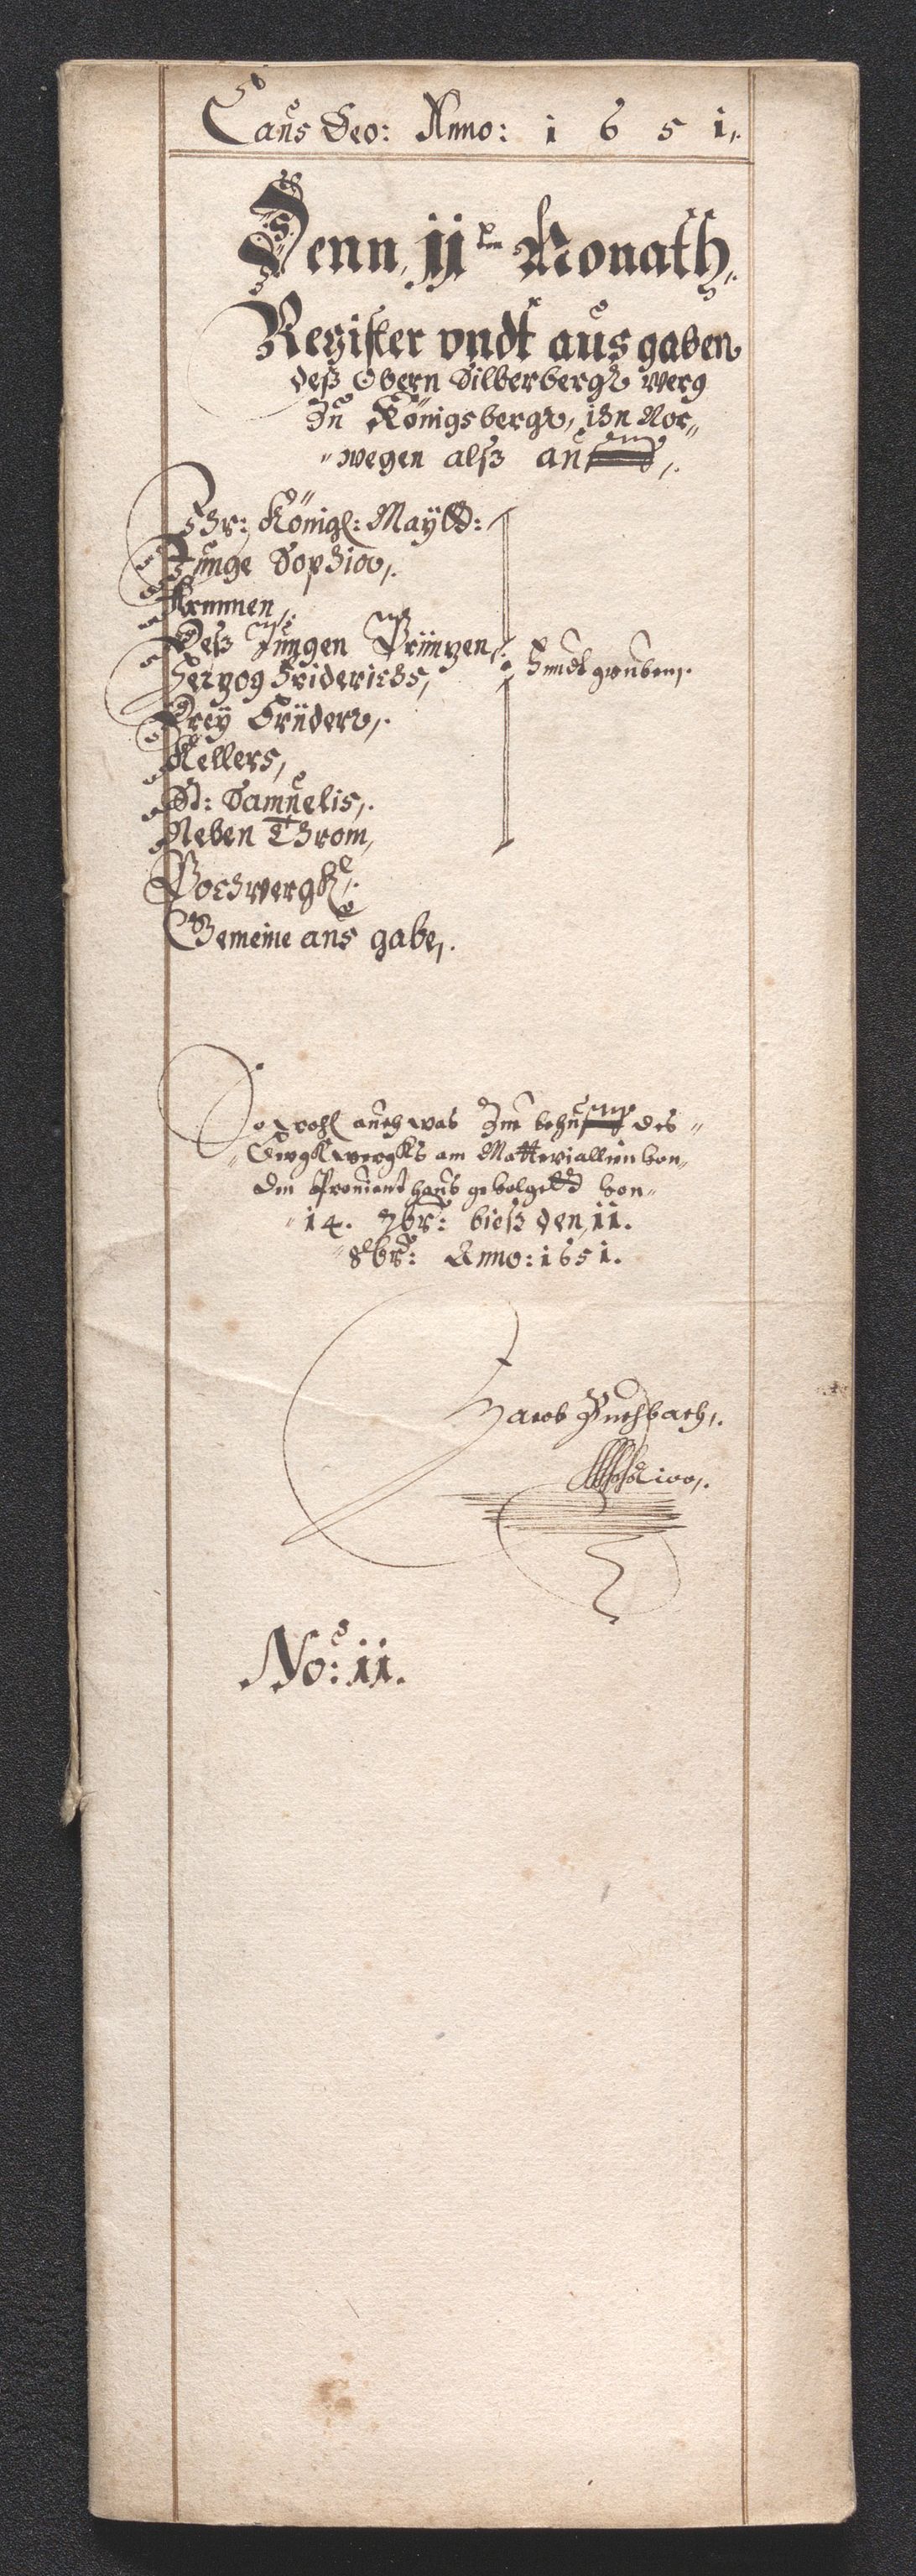 Laus Deo: Anno: 1651,.
Denn, 11ten Monath,
Register vndt ausgaben
deß Obern Silberbergk werg
Zu Königsbergk, ihn Nor„
„wegen alß auf
Ihr: Königl: Maytt:
Junge Sophia,.
Armen,.
Deß Jungen Printzen,
Hertzog Friderichs,
Fundtgruben,.
Drey Brüder,.
Kellers,
St: Samuelis,.
Neben Throm,
Pochwergk,.
Gemeine aus gabe,.
Sowohl auch was Zum behuf des„
„Bergkwergks am Matteriallien von„
den Proviandt haus gevolgett von„
„14. 7br: bieß den, 11.
„8br: Anno: 1651.
Jacob Buchbach,.
No: 11.